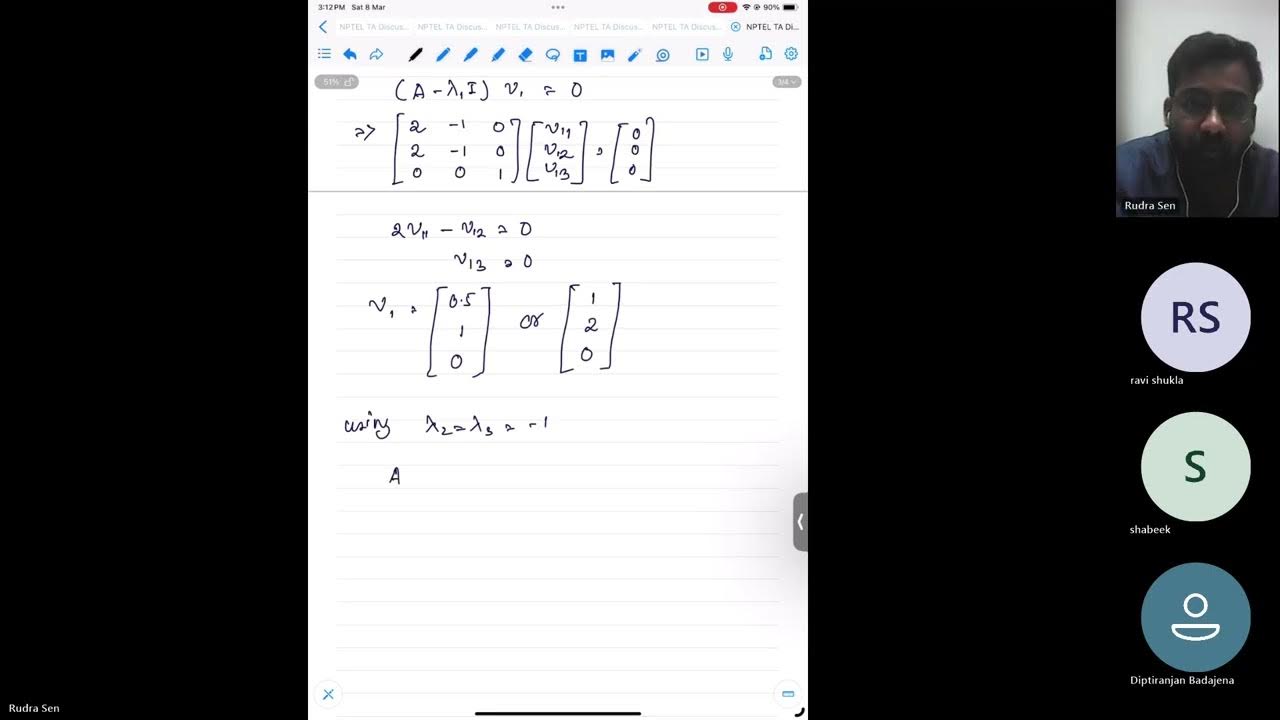 3:12 PM Sat 8 Mar
90%
NPTEL TA Discus... NPTEL TA Discus... NPTEL TA Discus... NPTEL TA Discus... NPTEL TA Discus... NPTEL TA Di...
51%
3/4
(A - λ₁I) v₁ = 0
=> [2 -1 0] [v₁₁] = [0]
[2 -1 0] [v₁₂] [0]
[0 0 1] [v₁₃] [0]
2v₁₁ - v₁₂ = 0
v₁₃ = 0
v₁ = [0.5] or [1]
[1] [2]
[0] [0]
using λ₂ = λ₃ = -1
A
Rudra Sen
RS
ravi shukla
S
shabeek
Diptiranjan Badajena
Rudra Sen